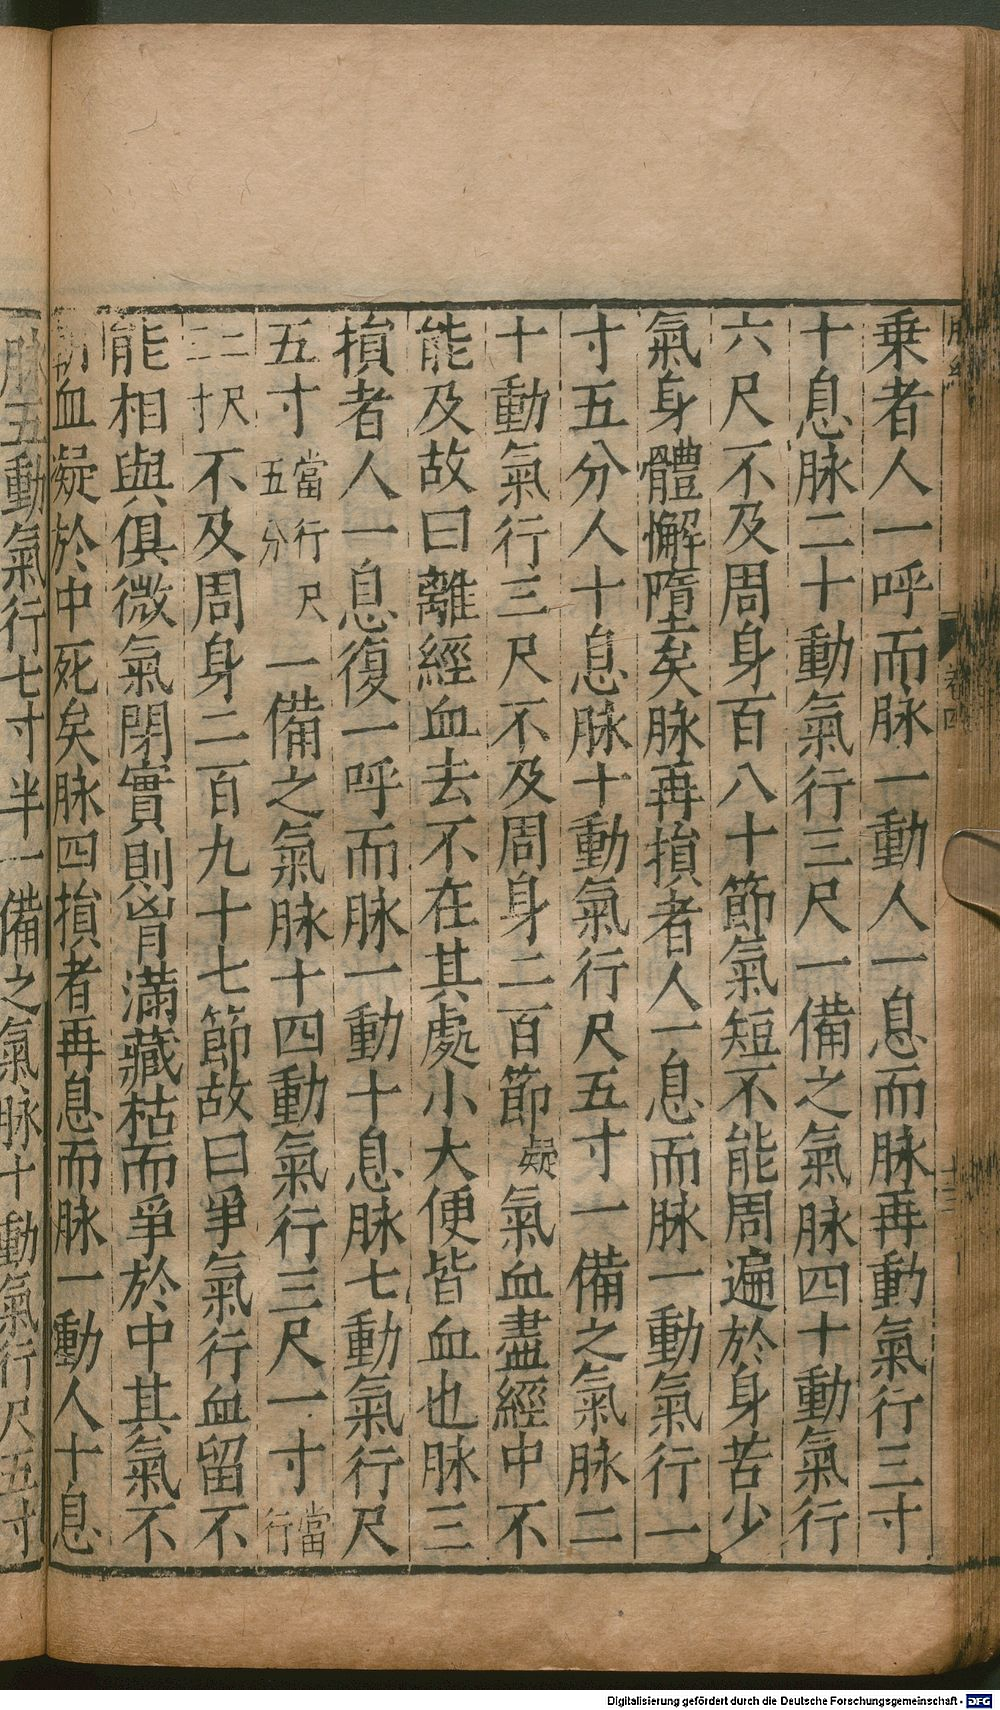 乗者人一呼而脉一動人一息而脉再動氣行三寸
十息脉二十動氣行三尺一備之氣脉四十動氣行
六尺不及周身百八十節氣短不能周遍於身苦少
氣身體懈墮矣脉再損者人一息而脉一動氣行一
寸五分人十息脉十動氣行尺五寸一備之氣脉二
十動氣行三尺不及周身二百節凝氣血盡經中不
能及故曰離經血去不在其處小大便皆血也脉三
損者人一息復一呼而脉一動十息脉七動氣行尺
五寸當行尺五分一備之氣脉十四動氣行三尺一寸當行
二尺二寸不及周身二百九十七節故曰爭氣行血留不
能相與俱微氣閉實則胷滿藏枯而爭於中其氣不
朝血凝於中死矣脉四損者再息而脉一動人十息
脉五動氣行七寸半一備之氣脉十動氣行尺五寸
卷四
十三
Digitalisierung gefördert durch die Deutsche Forschungsgemeinschaft - DFG